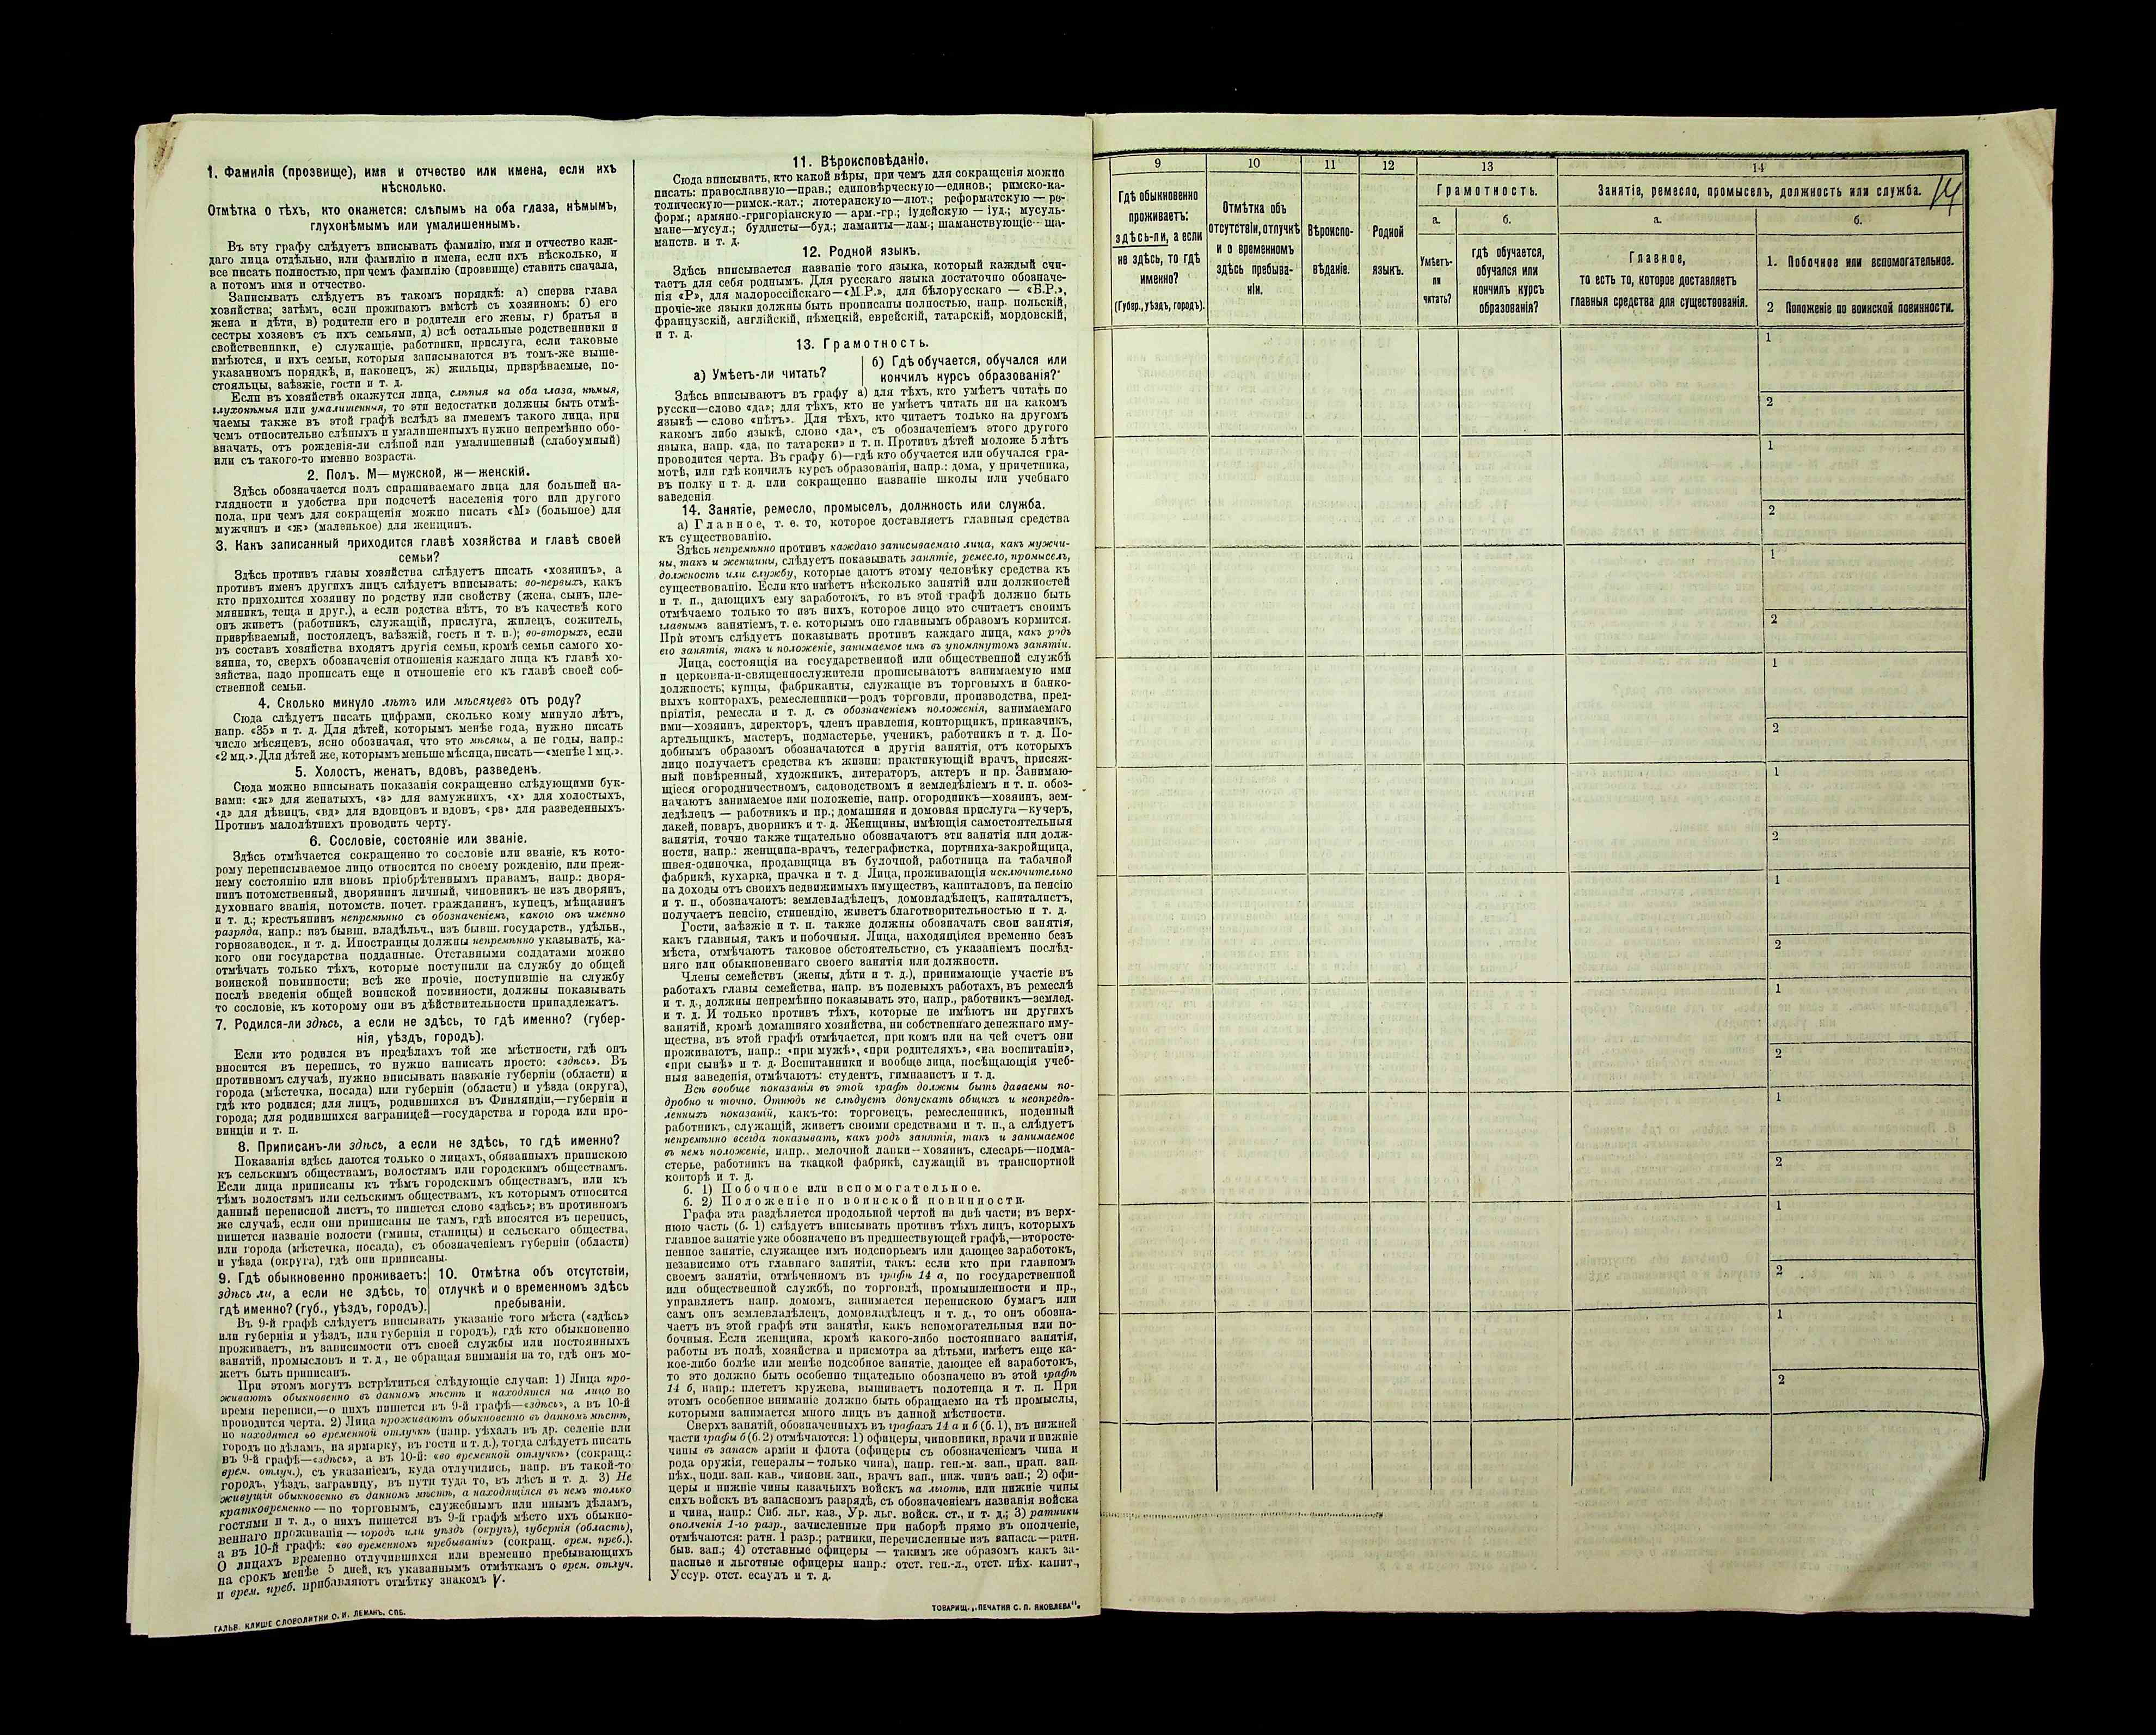 1. Фамилія (прозвище), имя и отчество или имена, если ихъ
нѣсколько.
Отмѣтка о тѣхъ, кто окажется: слѣпымъ на оба глаза, нѣмымъ,
глухонѣмымъ или умалишеннымъ.
Въ эту графу слѣдуетъ вписывать фамилію, имя и отчество каж-
даго лица отдѣльно, или фамилію и имена, если ихъ нѣсколько, и
все писать полностью, при чемъ фамилію (прозвище) ставить сначала,
а потомъ имя и отчество.
Записывать слѣдуетъ въ такомъ порядкѣ: а) сперва глава
хозяйства; затѣмъ, если проживаютъ вмѣстѣ съ хозяиномъ; б) его
жена и дѣти, в) родители его и родители его жены, г) братья и
сестры хозяевъ съ ихъ семьями, д) всѣ остальные родственники и
свойственники, е) служащіе, работники, прислуга, если таковые
имѣются, и ихъ семьи, которыя записываются въ томъ-же выше-
указанномъ порядкѣ, и, наконецъ, ж) жильцы, призрѣваемые, по-
стояльцы, заѣзжіе, гости и т. д.
Если въ хозяйствѣ окажутся лица, слѣпыя на оба глаза, нѣмыя,
глухонѣмыя или умалишенныя, то эти недостатки должны быть отмѣ-
чаемы также въ этой графѣ вслѣдъ за именемъ такого лица, при
чемъ относительно слѣпыхъ и умалишенныхъ нужно непремѣнно обо-
значать, отъ рожденія-ли слѣпой или умалишенный (слабоумный)
или съ такого-то именно возраста.
2. Полъ. М—мужской, ж—женскій.
Здѣсь обозначается полъ спрашиваемаго лица для большей на-
глядности и удобства при подсчетѣ населенія того или другого
пола, при чемъ для сокращенія можно писать «М» (большое) для
мужчинъ и «ж» (маленькое) для женщинъ.
3. Какъ записанный приходится главѣ хозяйства и главѣ своей
семьи?
Здѣсь противъ главы хозяйства слѣдуетъ писать «хозяинъ», а
противъ именъ другихъ лицъ слѣдуетъ вписывать: во-первыхъ, какъ
кто приходится хозяину по родству или свойству (жена, сынъ, пле-
мянникъ, теща и друг.), а если родства нѣтъ, то въ качествѣ кого
онъ живетъ (работникъ, служащій, прислуга, жилецъ, сожитель,
призрѣваемый, постоялецъ, заѣзжій, гость и т. п.); во-вторыхъ, если
въ составъ хозяйства входятъ другія семьи, кромѣ семьи самого хо-
зяина, то, сверхъ обозначенія отношенія каждаго лица къ главѣ хо-
зяйства, надо прописать еще и отношеніе его къ главѣ своей соб-
ственной семьи.
4. Сколько минуло лѣтъ или мѣсяцевъ отъ роду?
Сюда слѣдуетъ писать цифрами, сколько кому минуло лѣтъ,
напр. «35» и т. д. Для дѣтей, которымъ менѣе года, нужно писать
число мѣсяцевъ, ясно обозначая, что это мѣсяцы, а не годы, напр.:
«2 мц.». Для дѣтей же, которымъ меньше мѣсяца, писать—«менѣе 1 мц.».
5. Холостъ, женатъ, вдовъ, разведенъ.
Сюда можно вписывать показанія сокращенно слѣдующими бук-
вами: «ж» для женатыхъ, «з» для замужнихъ, «х» для холостыхъ,
«д» для дѣвицъ, «вд» для вдовцовъ и вдовъ, «рз» для разведенныхъ.
Противъ малолѣтнихъ проводить черту.
6. Сословіе, состояніе или званіе.
Здѣсь отмѣчается сокращенно то сословіе или званіе, къ кото-
рому переписываемое лицо относится по своему рожденію, или преж-
нему состоянію или вновь пріобрѣтеннымъ правамъ, напр.: дворя-
нинъ потомственный, дворянинъ личный, чиновникъ не изъ дворянъ,
духовнаго званія, потомств. почет. гражданинъ, купецъ, мѣщанинъ
и т. д.; крестьянинъ непремѣнно съ обозначеніемъ, какого онъ именно
разряда, напр.: изъ бывш. владѣльч., изъ бывш. государств., удѣльн.,
горнозаводск., и т. д. Иностранцы должны непремѣнно указывать, ка-
кого они государства подданные. Отставными солдатами можно
отмѣчать только тѣхъ, которые поступили на службу до общей
воинской повинности; всѣ же прочіе, поступившіе на службу
послѣ введенія общей воинской повинности, должны показывать
то сословіе, къ которому они въ дѣйствительности принадлежатъ.
7. Родился-ли здѣсь, а если не здѣсь, то гдѣ именно? (губер-
нія, уѣздъ, городъ).
Если кто родился въ предѣлахъ той же мѣстности, гдѣ онъ
вносится въ перепись, то нужно написать просто: «здѣсь». Въ
противномъ случаѣ, нужно вписывать названіе губерніи (области) и
города (мѣстечка, посада) или губерніи (области) и уѣзда (округа),
гдѣ кто родился; для лицъ, родившихся въ Финляндіи,—губерніи и
города; для родившихся заграницей—государства и города или про-
винціи и т. п.
8. Приписанъ-ли здѣсь, а если не здѣсь, то гдѣ именно?
Показанія здѣсь даются только о лицахъ, обязанныхъ припискою
къ сельскимъ обществамъ, волостямъ или городскимъ обществамъ.
Если лица приписаны къ тѣмъ городскимъ обществамъ, или къ
тѣмъ волостямъ или сельскимъ обществамъ, къ которымъ относится
данный переписной листъ, то пишется слово «здѣсь»; въ противномъ
же случаѣ, если они приписаны не тамъ, гдѣ вносятся въ перепись,
пишется названіе волости (гмины, станицы) и сельскаго общества,
или города (мѣстечка, посада), съ обозначеніемъ губерніи (области)
и уѣзда (округа), гдѣ они приписаны.
9. Гдѣ обыкновенно проживаетъ:
здѣсь ли, а если не здѣсь, то
гдѣ именно? (губ., уѣздъ, городъ).
10. Отмѣтка объ отсутствіи,
отлучкѣ и о временномъ здѣсь
пребываніи.
Въ 9-й графѣ слѣдуетъ вписывать указаніе того мѣста («здѣсь»
или губернія и уѣздъ, или губернія и городъ), гдѣ кто обыкновенно
проживаетъ, въ зависимости отъ своей службы или постоянныхъ
занятій, промысловъ и т. д., не обращая вниманія на то, гдѣ онъ мо-
жетъ быть приписанъ.
При этомъ могутъ встрѣтиться слѣдующіе случаи: 1) Лица про-
живаютъ обыкновенно въ данномъ мѣстѣ и находятся на лицо во
время переписи,—о нихъ пишется въ 9-й графѣ—«здѣсь», а въ 10-й
проводится черта. 2) Лица проживаютъ обыкновенно въ данномъ мѣстѣ,
но находятся во временной отлучкѣ (напр. уѣхалъ въ др. селеніе или
городъ по дѣламъ, на ярмарку, въ гости и т. д.), тогда слѣдуетъ писать
въ 9-й графѣ—«здѣсь», а въ 10-й: «во временной отлучкѣ» (сокращ.:
врем. отлуч.), съ указаніемъ, куда отлучились, напр. въ такой-то
городъ, уѣздъ, заграницу, въ пути туда то, въ лѣсъ и т. д. 3) Не
живущія обыкновенно въ данномъ мѣстѣ, а находящіяся въ немъ только
кратковременно — по торговымъ, служебнымъ или инымъ дѣламъ,
гостями и т. д., о нихъ пишется въ 9-й графѣ мѣсто ихъ обыкно-
веннаго проживанія — городъ или уѣздъ (округъ), губернія (область),
а въ 10-й графѣ: «во временномъ пребываніи» (сокращ. врем. преб.).
О лицахъ временно отлучившихся или временно пребывающихъ
на срокъ менѣе 5 дней, къ указаннымъ отмѣткамъ о врем. отлуч.
и врем. преб. прибавляютъ отмѣтку знакомъ V.
ГАЛЬВ. КЛИШЕ СЛОВОЛИТНИ О. И. ЛЕМАНЪ. СПБ.
11. Вѣроисповѣданіе.
Сюда вписывать, кто какой вѣры, при чемъ для сокращенія можно
писать: православную—прав.; единовѣрческую—единов.; римско-ка-
толическую—римск.-кат.; лютеранскую—лют.; реформатскую — ре-
форм.; армяно.-григоріанскую — арм.-гр.; іудейскую — іуд.; мусуль-
мане—мусул.; буддисты—буд.; ламаиты—лам.; шаманствующіе—ша-
манств. и т. д.
12. Родной языкъ.
Здѣсь вписывается названіе того языка, который каждый счи-
таетъ для себя роднымъ. Для русскаго языка достаточно обозначе-
нія «Р», для малороссійскаго—«М.Р.», для бѣлорусскаго — «Б.Р.»,
прочіе-же языки должны быть прописаны полностью, напр. польскій,
французскій, англійскій, нѣмецкій, еврейскій, татарскій, мордовскій,
и т. д.
13. Грамотность.
а) Умѣетъ-ли читать?
б) Гдѣ обучается, обучался или
кончилъ курсъ образованія?
Здѣсь вписываютъ въ графу а) для тѣхъ, кто умѣетъ читать по
русски—слово «да»; для тѣхъ, кто не умѣетъ читать ни на какомъ
языкѣ — слово «нѣтъ». Для тѣхъ, кто читаетъ только на другомъ
какомъ либо языкѣ, слово «да», съ обозначеніемъ этого другого
языка, напр. «да, по татарски» и т. п. Противъ дѣтей моложе 5 лѣтъ
проводится черта. Въ графу б)—гдѣ кто обучается или обучался гра-
мотѣ, или гдѣ кончилъ курсъ образованія, напр.: дома, у причетника,
въ полку и т. д. или сокращенно названіе школы или учебнаго
заведенія.
14. Занятіе, ремесло, промыселъ, должность или служба.
а) Главное, т. е. то, которое доставляетъ главныя средства
къ существованію.
Здѣсь непремѣнно противъ каждаго записываемаго лица, какъ мужчи-
ны, такъ и женщины, слѣдуетъ показывать занятіе, ремесло, промыселъ,
должность или службу, которые даютъ этому человѣку средства къ
существованію. Если кто имѣетъ нѣсколько занятій или должностей
и т. п., дающихъ ему заработокъ, то въ этой графѣ должно быть
отмѣчаемо только то изъ нихъ, которое лицо это считаетъ своимъ
главнымъ занятіемъ, т. е. которымъ оно главнымъ образомъ кормится.
При этомъ слѣдуетъ показывать противъ каждаго лица, какъ родъ
его занятія, такъ и положеніе, занимаемое имъ въ упомянутомъ занятіи.
Лица, состоящія на государственной или общественной службѣ
и церковна-и-священнослужители прописываютъ занимаемую ими
должность; купцы, фабриканты, служащіе въ торговыхъ и банко-
выхъ конторахъ, ремесленники—родъ торговли, производства, пред-
пріятія, ремесла и т. д. съ обозначеніемъ положенія, занимаемаго
ими—хозяинъ, директоръ, членъ правленія, конторщикъ, приказчикъ,
артельщикъ, мастеръ, подмастерье, ученикъ, работникъ и т. д. По-
добнымъ образомъ обозначаются и другія занятія, отъ которыхъ
лицо получаетъ средства къ жизни: практикующій врачъ, присяж-
ный повѣренный, художникъ, литераторъ, актеръ и пр. Занимаю-
щіеся огородничествомъ, садоводствомъ и земледѣліемъ и т. п. обоз-
начаютъ занимаемое ими положеніе, напр. огородникъ—хозяинъ, зем-
ледѣлецъ — работникъ и пр.; домашняя и домовая прислуга—кучеръ,
лакей, поваръ, дворникъ и т. д. Женщины, имѣющія самостоятельныя
занятія, точно также тщательно обозначаютъ эти занятія или долж-
ности, напр.: женщина-врачъ, телеграфистка, портниха-закройщица,
швея-одиночка, продавщица въ булочной, работница на табачной
фабрикѣ, кухарка, прачка и т. д. Лица, проживающія исключительно
на доходы отъ своихъ недвижимыхъ имуществъ, капиталовъ, на пенсію
и т. п., обозначаютъ: землевладѣлецъ, домовладѣлецъ, капиталистъ,
получаетъ пенсію, стипендію, живетъ благотворительностью и т. д.
Гости, заѣзжіе и т. п. также должны обозначать свои занятія,
какъ главныя, такъ и побочныя. Лица, находящіяся временно безъ
мѣста, отмѣчаютъ таковое обстоятельство, съ указаніемъ послѣд-
няго или обыкновеннаго своего занятія или должности.
Члены семействъ (жены, дѣти и т. д.), принимающіе участіе въ
работахъ главы семейства, напр. въ полевыхъ работахъ, въ ремеслѣ
и т. д., должны непремѣнно показывать это, напр., работникъ—землед.
и т. д. И только противъ тѣхъ, которые не имѣютъ ни другихъ
занятій, кромѣ домашняго хозяйства, ни собственнаго денежнаго иму-
щества, въ этой графѣ отмѣчается, при комъ или на чей счетъ они
проживаютъ, напр.: «при мужѣ», «при родителяхъ», «на воспитаніи»,
«при сынѣ» и т. д. Воспитанники и вообще лица, посѣщающія учеб-
ныя заведенія, отмѣчаютъ: студентъ, гимназистъ и т. д.
Всѣ вообще показанія въ этой графѣ должны быть даваемы по-
дробно и точно. Отнюдь не слѣдуетъ допускать общихъ и неопредѣ-
ленныхъ показаній, какъ-то: торговецъ, ремесленникъ, поденный
работникъ, служащій, живетъ своими средствами и т. п., а слѣдуетъ
непремѣнно всегда показывать, какъ родъ занятія, такъ и занимаемое
въ немъ положеніе, напр., мелочной лавки—хозяинъ, слесарь—подма-
стерье, работникъ на ткацкой фабрикѣ, служащій въ транспортной
конторѣ и т. д.
б. 1) Побочное или вспомогательное.
б. 2) Положеніе по воинской повинности.
Графа эта раздѣляется продольной чертой на двѣ части; въ верх-
нюю часть (б. 1) слѣдуетъ вписывать противъ тѣхъ лицъ, которыхъ
главное занятіе уже обозначено въ предшествующей графѣ,—второсте-
пенное занятіе, служащее имъ подспорьемъ или дающее заработокъ,
независимо отъ главнаго занятія, такъ: если кто при главномъ
своемъ занятіи, отмѣченномъ въ графѣ 14 а, по государственной
или общественной службѣ, по торговлѣ, промышленности и пр.,
управляетъ напр. домомъ, занимается перепискою бумагъ или
самъ онъ землевладѣлецъ, домовладѣлецъ и т. д., то онъ обозна-
чаетъ въ этой графѣ эти занятія, какъ вспомогательныя или по-
бочныя. Если женщина, кромѣ какого-либо постояннаго занятія,
работы въ полѣ, хозяйства и присмотра за дѣтьми, имѣетъ еще ка-
кое-либо болѣе или менѣе подсобное занятіе, дающее ей заработокъ,
то это должно быть особенно тщательно обозначено въ этой графѣ
14 б, напр.: плететъ кружева, вышиваетъ полотенца и т. п. При
этомъ особенное вниманіе должно быть обращаемо на тѣ промыслы,
которыми занимается много лицъ въ данной мѣстности.
Сверхъ занятій, обозначенныхъ въ графахъ 14 а и б (б. 1), въ нижней
части графы б (б. 2) отмѣчаются: 1) офицеры, чиновники, врачи и нижніе
чины въ запасѣ арміи и флота (офицеры съ обозначеніемъ чина и
рода оружія, генералы—только чина), напр. ген.-м. зап., прап. зап.
пѣх., подп. зап. кав., чиновн. зап., врачъ зап., ниж. чинъ зап.; 2) офи-
церы и нижніе чины казачьихъ войскъ на льготѣ, или нижніе чины
сихъ войскъ въ запасномъ разрядѣ, съ обозначеніемъ названія войска
и чина, напр.: Сиб. льг. каз., Ур. льг. войск. ст., и т. д.; 3) ратники
ополченія 1-го разр., зачисленные при наборѣ прямо въ ополченіе,
отмѣчаются: ратн. 1 разр.; ратники, перечисленные изъ запаса.—ратн.
быв. зап.; 4) отставные офицеры — такимъ же образомъ какъ за-
пасные и льготные офицеры напр.: отст. ген.-л., отст. пѣх. капит.,
Уссур. отст. есаулъ и т. д.
ТОВАРИЩ. „ПЕЧАТНЯ С. П. ЯКОВЛЕВА".
9
10
11
12
13
14
Гдѣ обыкновенно
проживаетъ:
здѣсь-ли, а если
не здѣсь, то гдѣ
именно?
(Губер., уѣздъ, городъ).
Отмѣтка объ
отсутствіи, отлучкѣ
и о временномъ
здѣсь пребыва-
ніи.
Вѣроиспо-
вѣданіе.
Родной
языкъ.
Грамотность.
а.
Умѣетъ-
ли
читать?
б.
гдѣ обучается,
обучался или
кончилъ курсъ
образованія?
Занятіе, ремесло, промыселъ, должность или служба.
14
а.
Главное,
то есть то, которое доставляетъ
главныя средства для существованія.
б.
1. Побочное или вспомогательное.
2 Положеніе по воинской повинности.
1
2
1
2
1
2
1
2
1
2
1
2
1
2
1
2
1
2
1
2